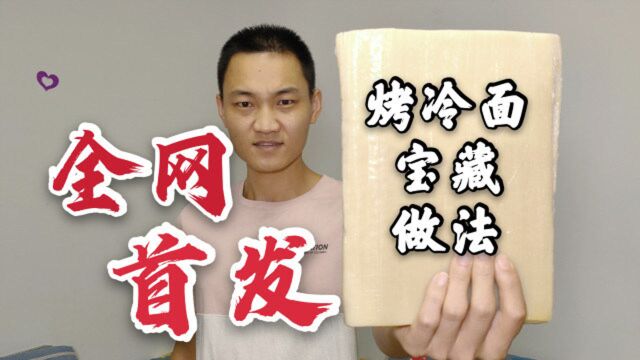 全网
首发
烤冷面
宝藏
做法